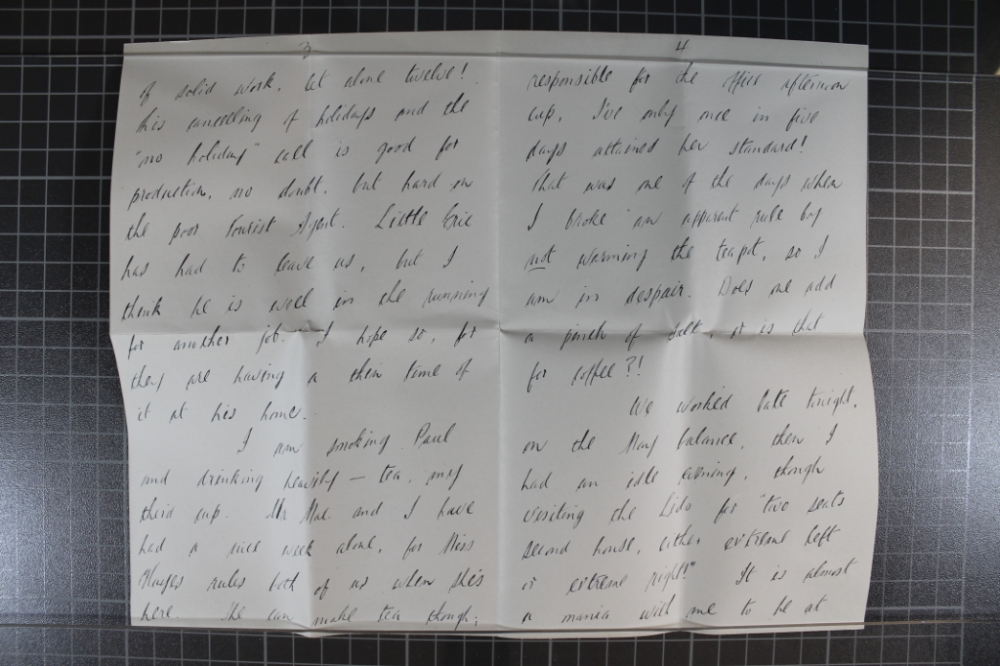 3
of solid work, let alone twelve!
This cancelling of holidays and the
"no holiday" call is good for
production, no doubt, but hard on
the poor Tourist Agent. Little Eric
has had to leave us, but I
think he is well in the running
for another job. I hope so, for
they are having a thin time of
it at his home.
I am smoking Paul
and drinking heavily — tea, my
third cup. Mr Mac. and I have
had a nice week alone, for Miss
Hayes rules both of us when she's
here. She can make tea though;
4
responsible for the office afternoon
cup, I've only once in five
days attained her standard!
That was one of the days when
I broke an apparent rule by
not warming the teapot, so I
am in despair. Does one add
a pinch of salt, or is that
for coffee?!
We worked late tonight,
on the May balance, then I
had an idle evening, though
visiting the Lido for "two seats
second house, either extreme left
or extreme right!" It is almost
a mania with me to be at